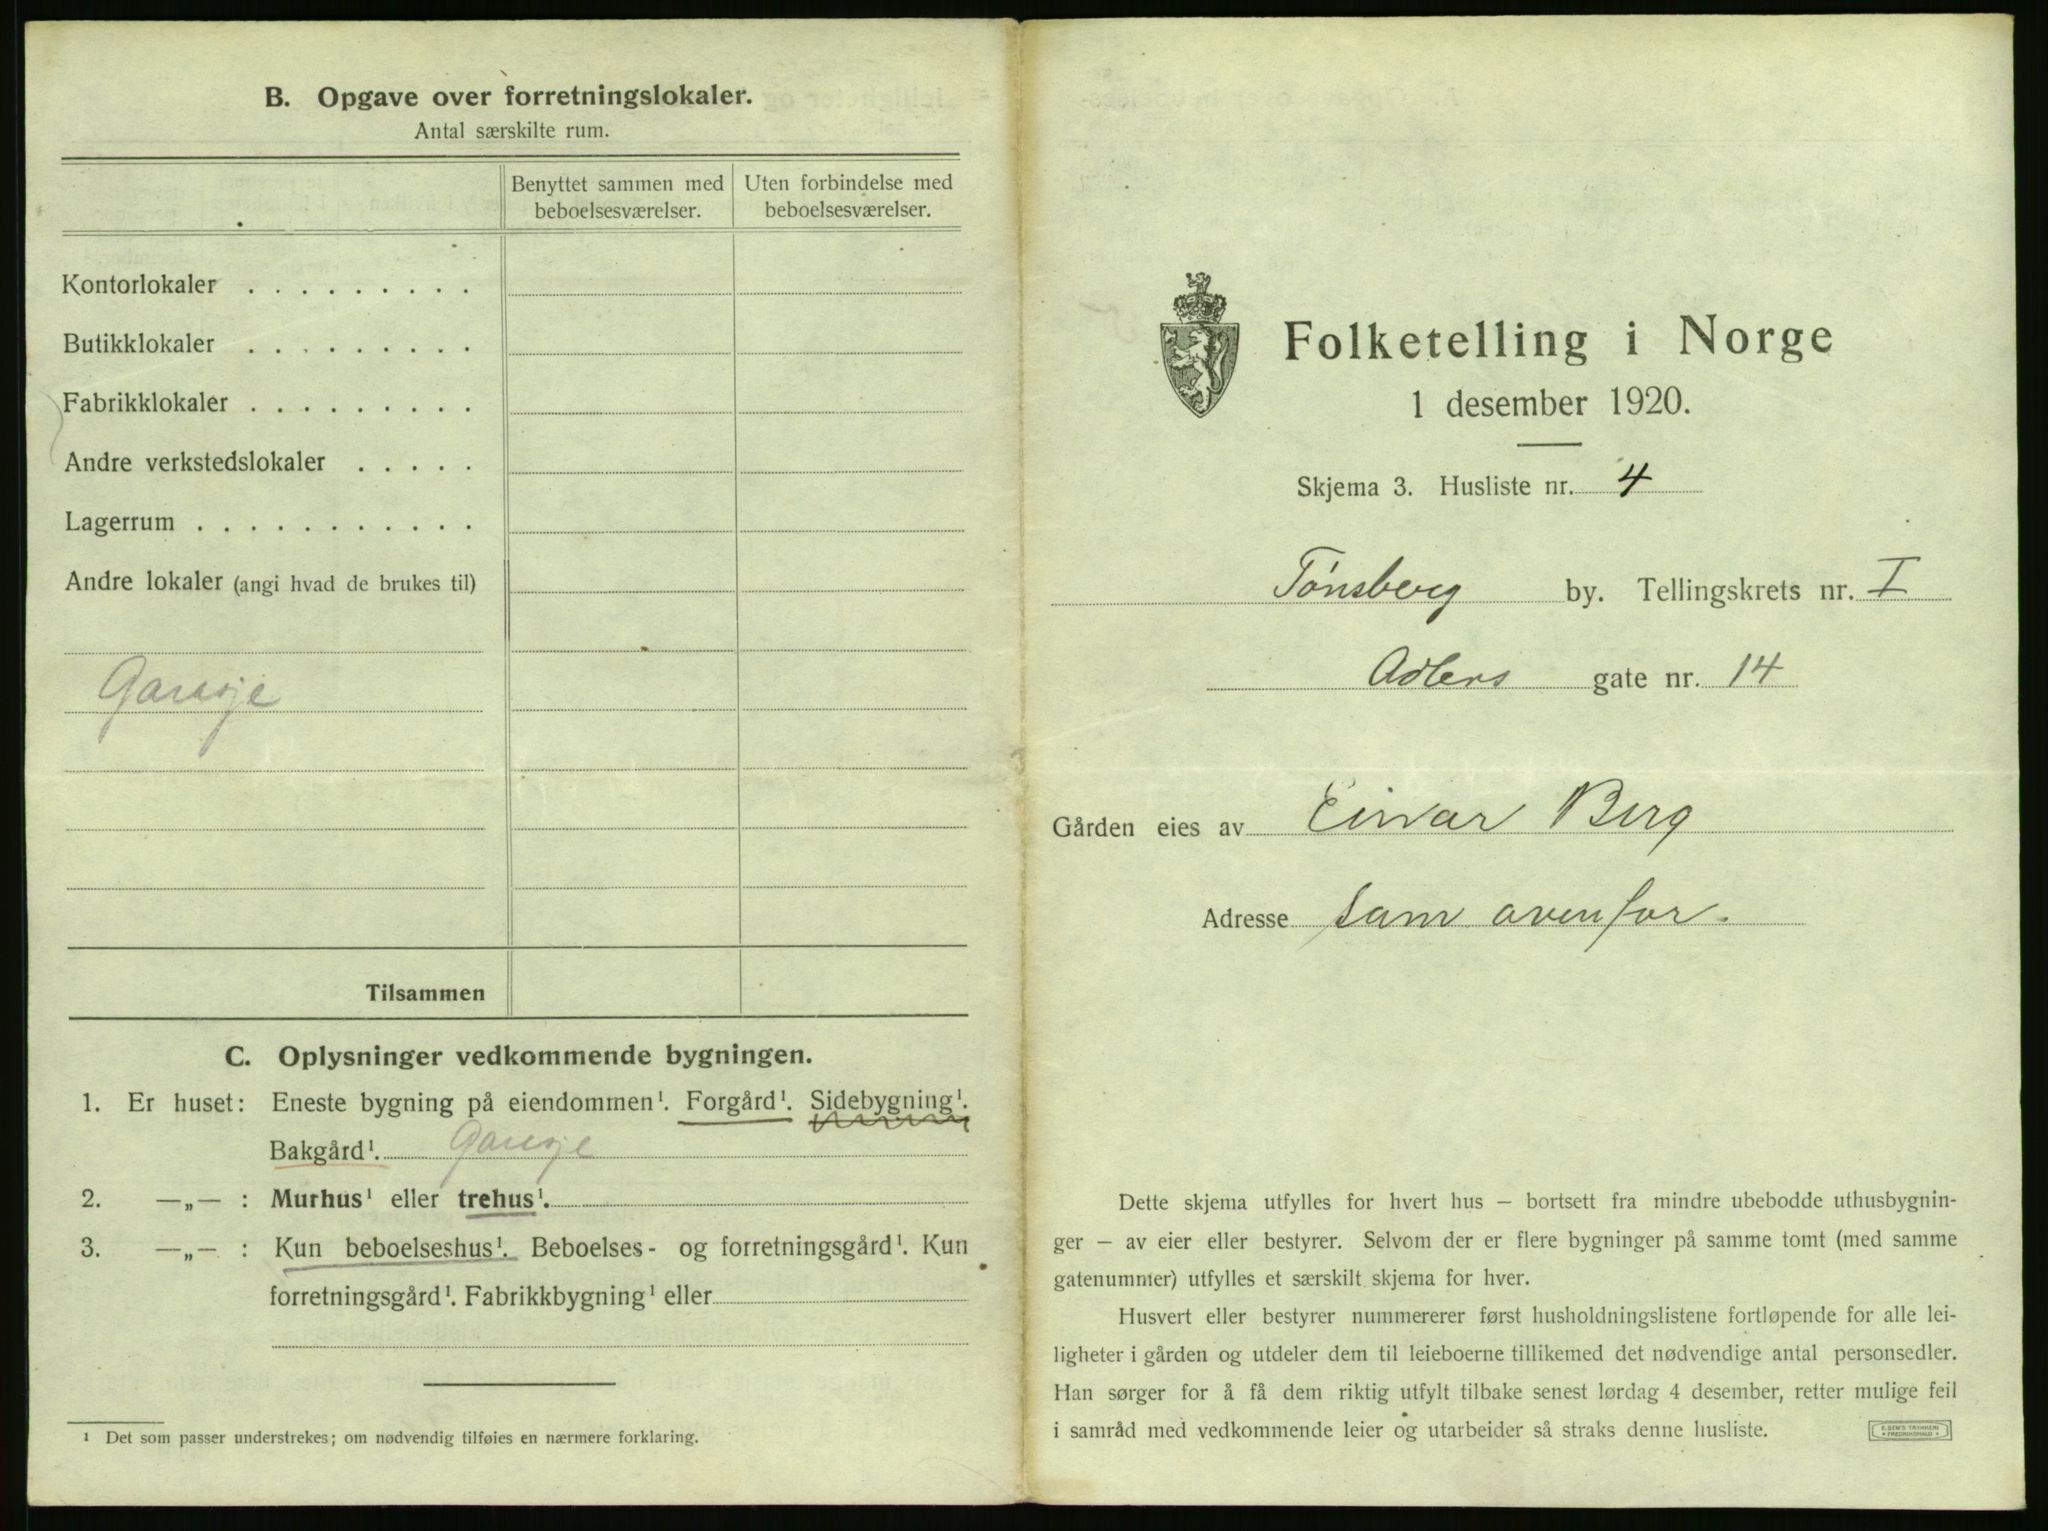 B. Opgave over forretningslokaler.
Antal særskilte rum.
Benyttet sammen med beboelsesværelser.
Uten forbindelse med beboelsesværelser.
Kontorlokaler . . . . . . . . .
Butikklokaler . . . . . . . . .
Fabrikklokaler . . . . . . . . .
Andre verkstedslokaler . . . . .
Lagerrum . . . . . . . . . . .
Andre lokaler (angi hvad de brukes til)
Garasje
Tilsammen
C. Oplysninger vedkommende bygningen.
1. Er huset: Eneste bygning på eiendommen¹. Forgård¹. Sidebygning¹.
Bakgård¹. Garasje
2. —„— : Murhus¹ eller trehus¹.
3. —„— : Kun beboelseshus¹. Beboelses- og forretningsgård¹. Kun
forretningsgård¹. Fabrikkbygning¹ eller
¹ Det som passer understrekes; om nødvendig tilføies en nærmere forklaring.
Folketelling i Norge
1 desember 1920.
Skjema 3. Husliste nr. 4
Tønsberg by. Tellingskrets nr. I
Adlers gate nr. 14
Gården eies av Einar Berg
Adresse som ovenfor.
Dette skjema utfylles for hvert hus – bortsett fra mindre ubebodde uthusbygnin-
ger – av eier eller bestyrer. Selvom der er flere bygninger på samme tomt (med samme
gatenummer) utfylles et særskilt skjema for hver.
Husvert eller bestyrer nummererer først husholdningslistene fortløpende for alle lei-
ligheter i gården og utdeler dem til leieboerne tillikemed det nødvendige antal personsedler.
Han sørger for å få dem riktig utfylt tilbake senest lørdag 4 desember, retter mulige feil
i samråd med vedkommende leier og utarbeider så straks denne husliste.
E. SEM'S TRYKKERI
FREDRIKSHALD